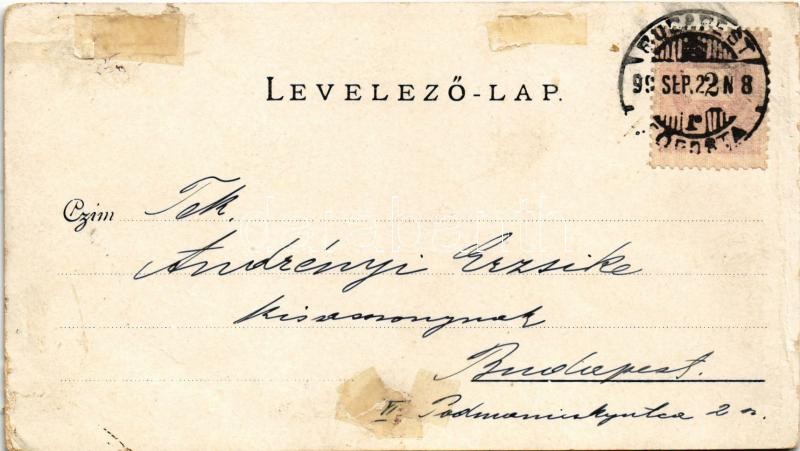 LEVELEZŐ-LAP.
BUDAPEST
99 SEP. 22 N 8
r
FŐPOSTA
Czim Tek.
Andrényi Erzsike
kisasszonynak
Budapest.
VI. Podmaniczkyutca 2 sz.
darabanth